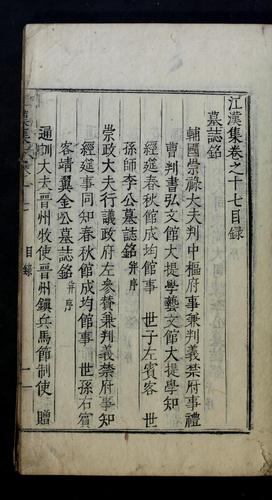 江漢集卷之十七目録
墓誌銘
輔國崇祿大夫判中樞府事兼判義禁府事禮
曹判書弘文館大提學藝文館大提學知
經筵春秋館成均館事 世子左賓客 世
孫師李公墓誌銘 幷序
崇政大夫行議政府左參賛兼判義禁府事知
經筵事同知春秋館成均館事 世孫右賓
客靖翼金公墓誌銘 幷序
通訓大夫晉州牧使晉州鎭兵馬節制使 贈
目録
一